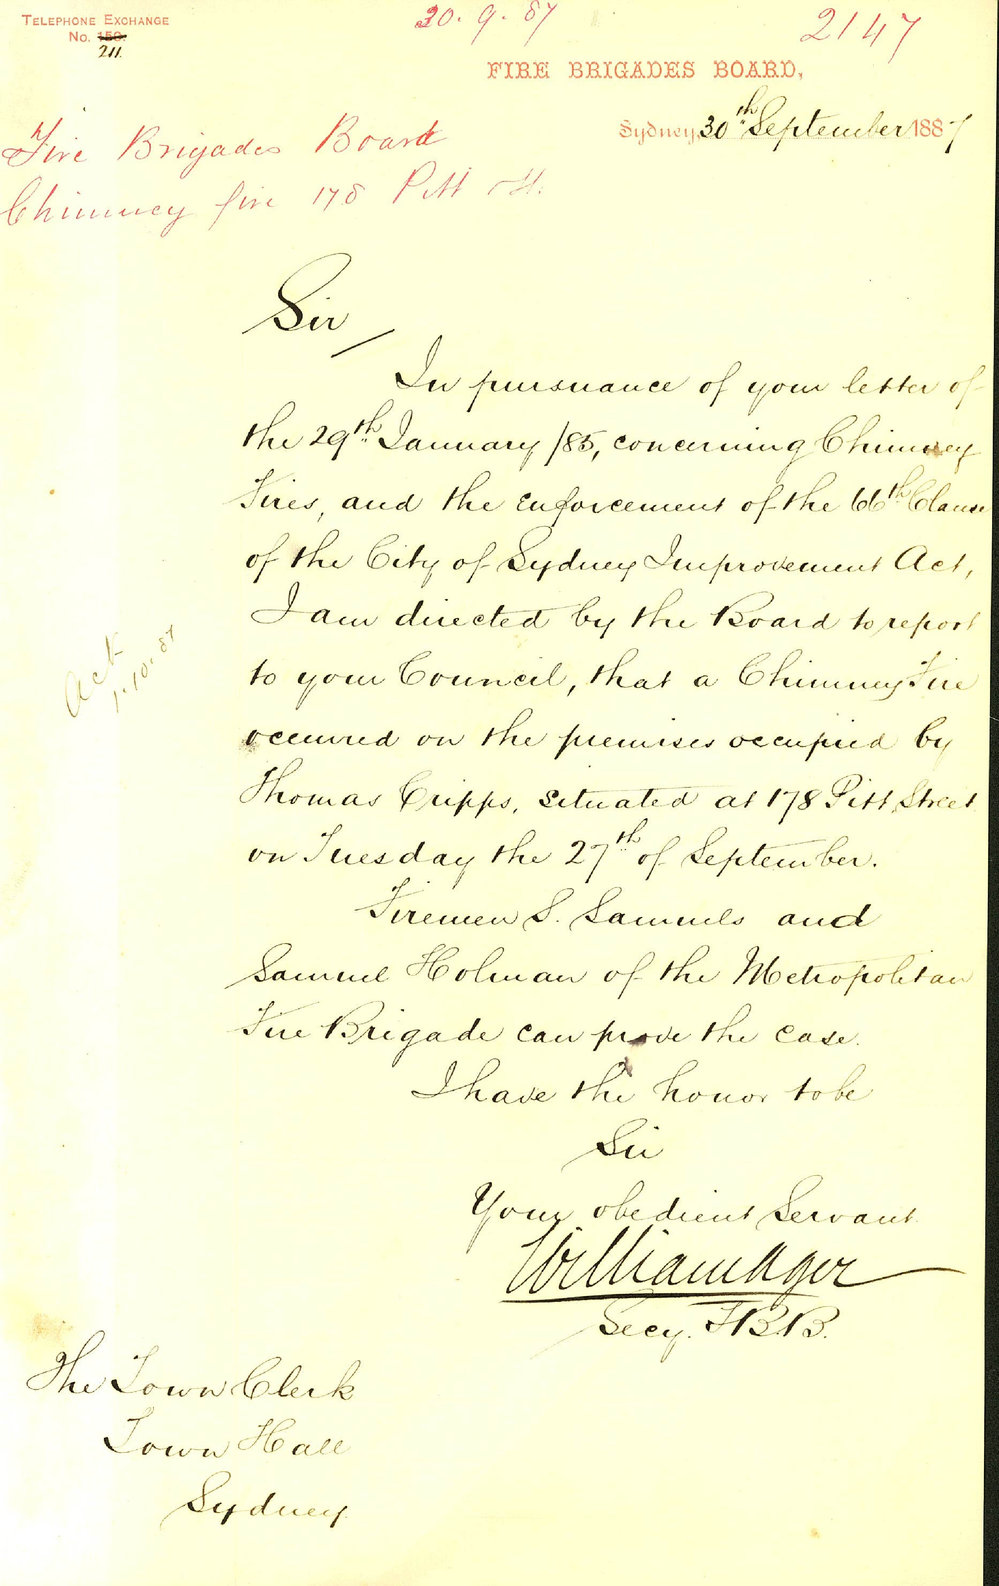 TELEPHONE EXCHANGE
No. 150.
211.
30. 9. 87
2147
FIRE BRIGADES BOARD,
Sydney, 30th September 1887
Fire Brigades Board
Chimney fire 178 Pitt St.
Sir
In pursuance of your letter of
the 29th January /85, concerning Chimney
Fires, and the enforcement of the 66th Clause
of the City of Sydney Improvement Act,
I am directed by the Board to report
to your Council, that a Chimney Fire
occurred on the premises occupied by
Thomas Cripps, situated at 178 Pitt Street
on Tuesday the 27th of September.
Firemen S. Samuels and
Samuel Holman of the Metropolitan
Fire Brigade can prove the case.
I have the honor to be
Sir
Your obedient Servant
William Ager
Secy. F.B.B.
Act
1.10.87
The Town Clerk
Town Hall
Sydney